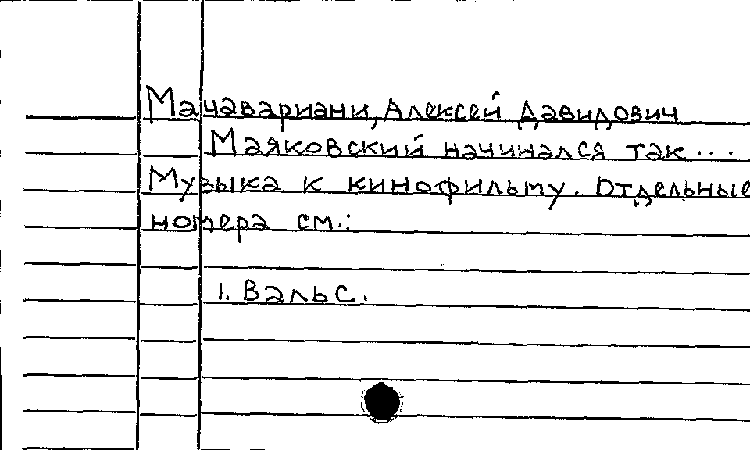 Мачавариани, Алексей Давидович
Маяковский начинался так...
Музыка к кинофильму. Отдельные
номера см.:
1. Вальс.